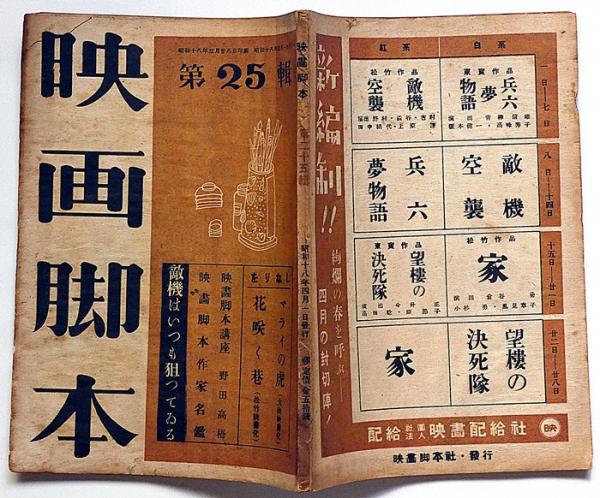 映画脚本
昭和十八年三月廿八日印刷
第25輯
をりなし
マライの虎
花咲く巷
(松竹映畫化)
映畫脚本講座 野田高梧
映畫脚本作家名鑑
敵機はいつも狙つてゐる
映畫脚本
第二十五輯
昭和十八年四月一日發行
新編制!!
絢爛の春を呼ぶ
四月の封切陣!
紅系
白系
一日—七日
東寶作品
兵六夢物語
松竹作品
敵機空襲
八日—十四日
敵機空襲
兵六夢物語
十五日—廿一日
松竹作品
家
東寶作品
望樓の決死隊
演出 今井正
高田稔・原節子
廿二日—廿八日
望樓の決死隊
家
配給 社團法人 映畫配給社
映
映畫脚本社・發行